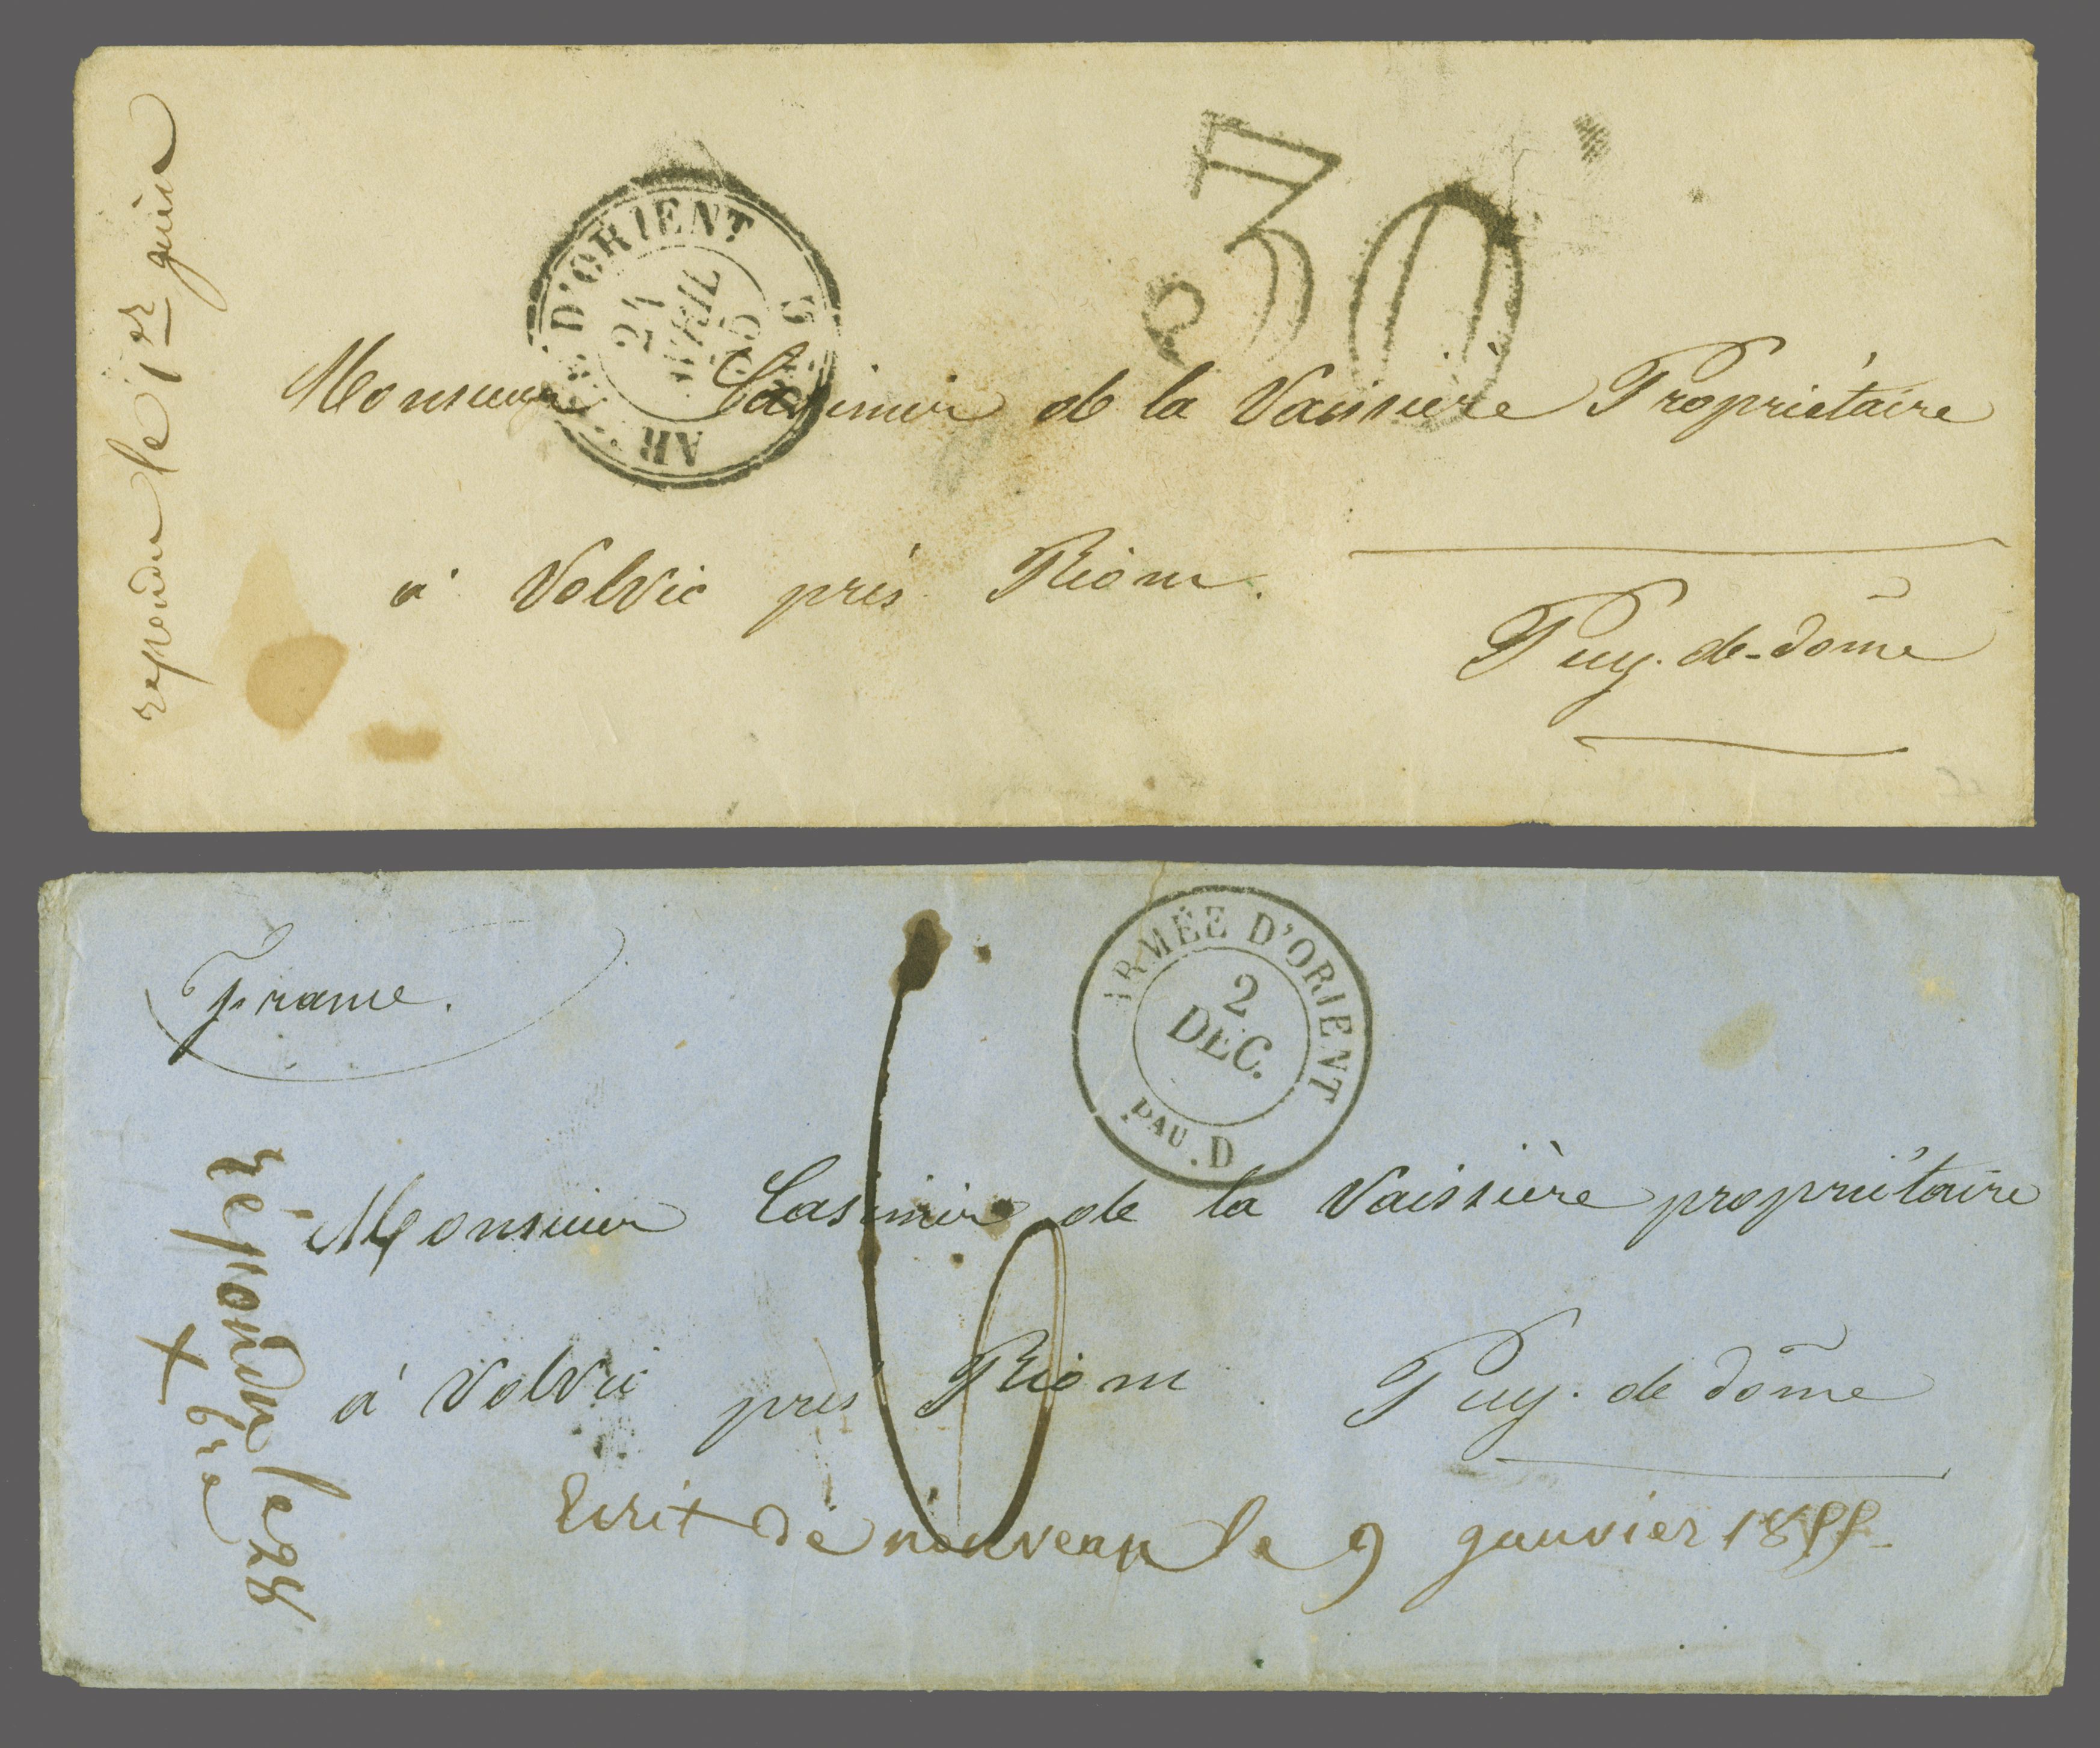 repondu le 1er juin
D'ORIENT
21
AVRIL
AR
30
Monsieur Casimir de la Vaissière Propriétaire
à Volvic près Riom.
Puy-de-dôme
France.
ARMÉE D'ORIENT
2
DEC.
PAU. D
6
Monsieur Casimir de la Vaissière propriétaire
à Volvic près Riom Puy. de dôme
répondu le 28
Xbre
Ecrit de nouveau le 9 janvier 1855